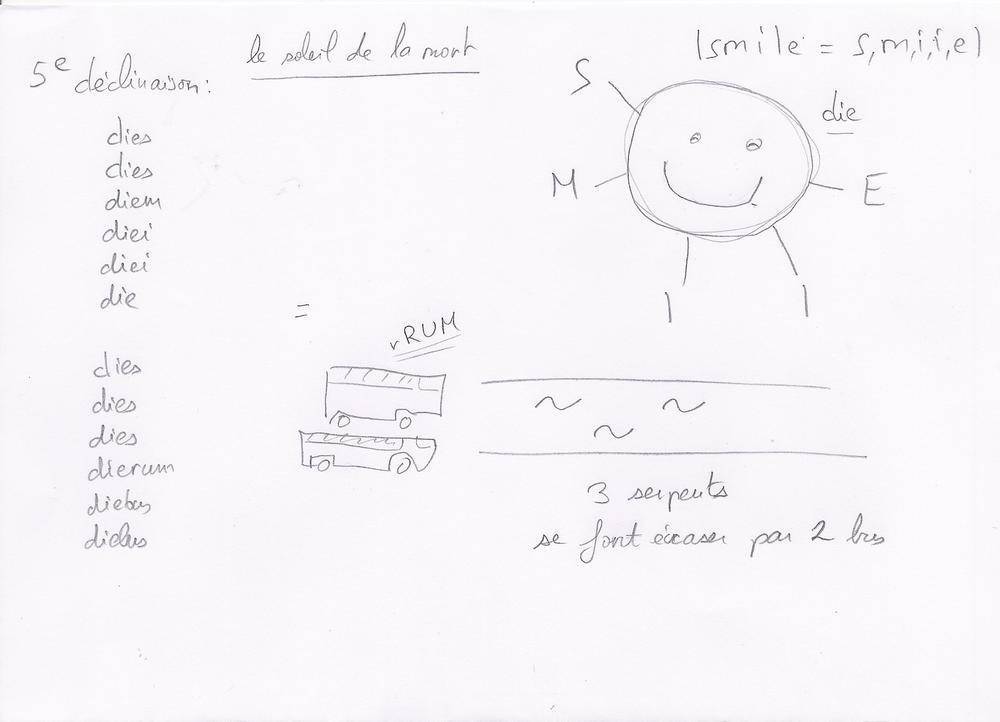 le soleil de la mort
5e déclinaison:
dies
dies
diem
diei
diei
die
dies
dies
dies
dierum
diebus
diebus
(smile = s,m,i,i,e)
S
die
M
E
I
I
=
vRUM
3 serpents
se font écraser par 2 bus